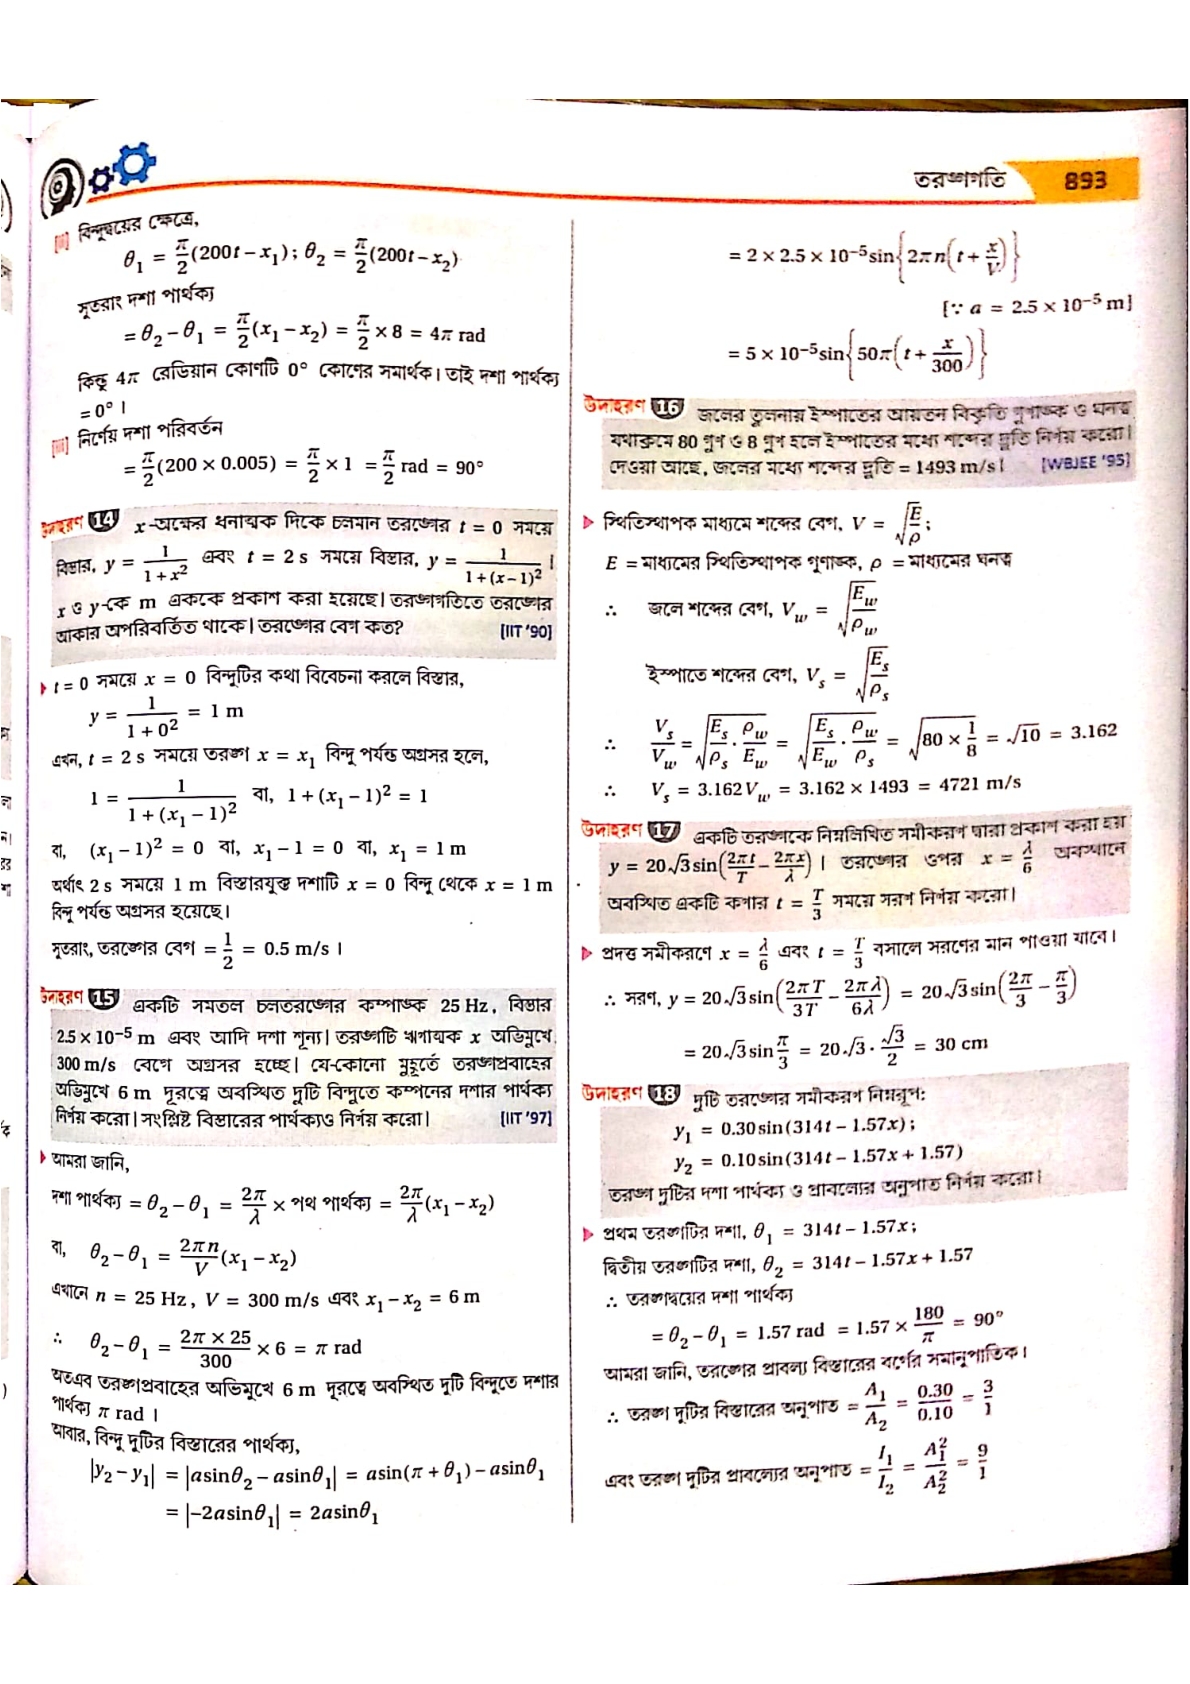 তরঙ্গগতি 893
[ii] বিন্দুদ্বয়ের ক্ষেত্রে,
θ₁ = π/2(200t − x₁); θ₂ = π/2(200t − x₂)
সুতরাং দশা পার্থক্য
= θ₂ − θ₁ = π/2(x₁ − x₂) = π/2 × 8 = 4π rad
কিন্তু 4π রেডিয়ান কোণটি 0° কোণের সমার্থক। তাই দশা পার্থক্য
= 0°।
[iii] নির্ণেয় দশা পরিবর্তন
= π/2(200 × 0.005) = π/2 × 1 = π/2 rad = 90°
উদাহরণ 14 x-অক্ষের ধনাত্মক দিকে চলমান তরঙ্গের t = 0 সময়ে
বিস্তার, y = 1/(1 + x²) এবং t = 2 s সময়ে বিস্তার, y = 1/(1 + (x − 1)²)।
x ও y-কে m এককে প্রকাশ করা হয়েছে। তরঙ্গগতিতে তরঙ্গের
আকার অপরিবর্তিত থাকে। তরঙ্গের বেগ কত? [IIT '90]
t = 0 সময়ে x = 0 বিন্দুটির কথা বিবেচনা করলে বিস্তার,
y = 1/(1 + 0²) = 1 m
এখন, t = 2 s সময়ে তরঙ্গ x = x₁ বিন্দু পর্যন্ত অগ্রসর হলে,
1 = 1/(1 + (x₁ − 1)²) বা, 1 + (x₁ − 1)² = 1
বা, (x₁ − 1)² = 0 বা, x₁ − 1 = 0 বা, x₁ = 1 m
অর্থাৎ 2 s সময়ে 1 m বিস্তারযুক্ত দশাটি x = 0 বিন্দু থেকে x = 1 m
বিন্দু পর্যন্ত অগ্রসর হয়েছে।
সুতরাং, তরঙ্গের বেগ = 1/2 = 0.5 m/s।
উদাহরণ 15 একটি সমতল চলতরঙ্গের কম্পাঙ্ক 25 Hz, বিস্তার
2.5 × 10⁻⁵ m এবং আদি দশা শূন্য। তরঙ্গটি ঋণাত্মক x অভিমুখে
300 m/s বেগে অগ্রসর হচ্ছে। যে-কোনো মুহূর্তে তরঙ্গপ্রবাহের
অভিমুখে 6 m দূরত্বে অবস্থিত দুটি বিন্দুতে কম্পনের দশার পার্থক্য
নির্ণয় করো। সংশ্লিষ্ট বিস্তারের পার্থক্যও নির্ণয় করো। [IIT '97]
আমরা জানি,
দশা পার্থক্য = θ₂ − θ₁ = 2π/λ × পথ পার্থক্য = 2π/λ (x₁ − x₂)
বা, θ₂ − θ₁ = 2πn/V (x₁ − x₂)
এখানে n = 25 Hz, V = 300 m/s এবং x₁ − x₂ = 6 m
∴ θ₂ − θ₁ = (2π × 25)/300 × 6 = π rad
অতএব তরঙ্গপ্রবাহের অভিমুখে 6 m দূরত্বে অবস্থিত দুটি বিন্দুতে দশার
পার্থক্য π rad।
আবার, বিন্দু দুটির বিস্তারের পার্থক্য,
|y₂ − y₁| = |asinθ₂ − asinθ₁| = asin(π + θ₁) − asinθ₁
= |−2asinθ₁| = 2asinθ₁
= 2 × 2.5 × 10⁻⁵ sin{2πn(t + x/V)}
[∵ a = 2.5 × 10⁻⁵ m]
= 5 × 10⁻⁵ sin{50π(t + x/300)}
উদাহরণ 16 জলের তুলনায় ইস্পাতের আয়তন বিকৃতি গুণাঙ্ক ও ঘনত্ব
যথাক্রমে 80 গুণ ও 8 গুণ হলে ইস্পাতের মধ্যে শব্দের দ্রুতি নির্ণয় করো।
দেওয়া আছে, জলের মধ্যে শব্দের দ্রুতি = 1493 m/s। [WBJEE '95]
স্থিতিস্থাপক মাধ্যমে শব্দের বেগ, V = √(E/ρ);
E = মাধ্যমের স্থিতিস্থাপক গুণাঙ্ক, ρ = মাধ্যমের ঘনত্ব
∴ জলে শব্দের বেগ, V_w = √(E_w/ρ_w)
ইস্পাতে শব্দের বেগ, V_s = √(E_s/ρ_s)
∴ V_s/V_w = √(E_s/ρ_s · ρ_w/E_w) = √(E_s/E_w · ρ_w/ρ_s) = √(80 × 1/8) = √10 = 3.162
∴ V_s = 3.162V_w = 3.162 × 1493 = 4721 m/s
উদাহরণ 17 একটি তরঙ্গকে নিম্নলিখিত সমীকরণ দ্বারা প্রকাশ করা হয়
y = 20√3 sin(2πt/T − 2πx/λ)। তরঙ্গের ওপর x = λ/6 অবস্থানে
অবস্থিত একটি কণার t = T/3 সময়ে সরণ নির্ণয় করো।
প্রদত্ত সমীকরণে x = λ/6 এবং t = T/3 বসালে সরণের মান পাওয়া যাবে।
∴ সরণ, y = 20√3 sin(2πT/3T − 2πλ/6λ) = 20√3 sin(2π/3 − π/3)
= 20√3 sin π/3 = 20√3 · √3/2 = 30 cm
উদাহরণ 18 দুটি তরঙ্গের সমীকরণ নিম্নরূপ:
y₁ = 0.30 sin(314t − 1.57x);
y₂ = 0.10 sin(314t − 1.57x + 1.57)
তরঙ্গ দুটির দশা পার্থক্য ও প্রাবল্যের অনুপাত নির্ণয় করো।
প্রথম তরঙ্গটির দশা, θ₁ = 314t − 1.57x;
দ্বিতীয় তরঙ্গটির দশা, θ₂ = 314t − 1.57x + 1.57
∴ তরঙ্গদ্বয়ের দশা পার্থক্য
= θ₂ − θ₁ = 1.57 rad = 1.57 × 180/π = 90°
আমরা জানি, তরঙ্গের প্রাবল্য বিস্তারের বর্গের সমানুপাতিক।
∴ তরঙ্গ দুটির বিস্তারের অনুপাত = A₁/A₂ = 0.30/0.10 = 3/1
এবং তরঙ্গ দুটির প্রাবল্যের অনুপাত = I₁/I₂ = A₁²/A₂² = 9/1